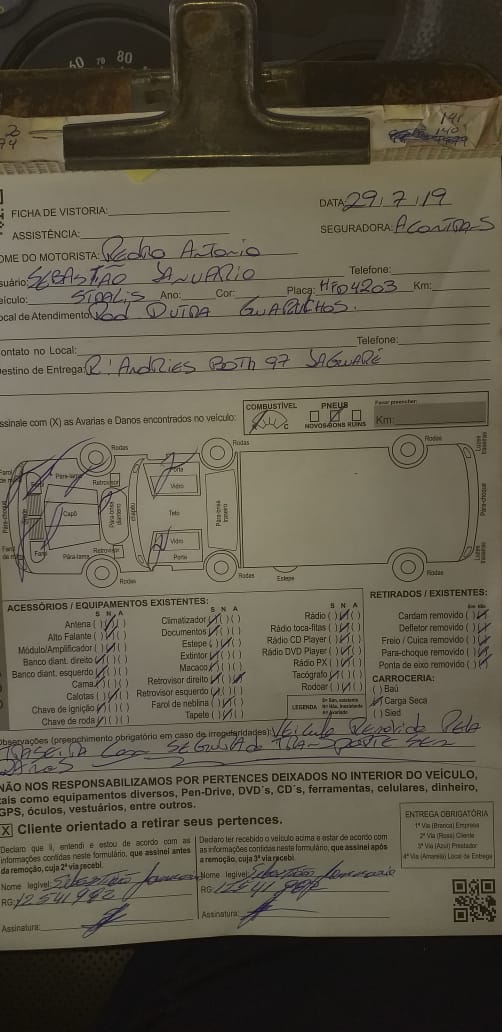 60 70 80
FICHA DE VISTORIA:
DATA: 29/7/19
ASSISTÊNCIA:
SEGURADORA:
OME DO MOTORISTA: Pedro Antonio
suário: SEBASTIÃO JANUARIO Telefone:
eículo: Ano: Cor: Placa: HFD4203 Km:
ocal de Atendimento: Rod DUTRA GUARULHOS.
ontato no Local: Telefone:
estino de Entrega: R: ANDRIES BOTH 97 JAGUARÉ
ssinale com (X) as Avarias e Danos encontrados no veículo:
COMBUSTÍVEL
PNEUS
NOVOS BONS RUINS
Favor preencher:
Km:
Rodas
Rodas
Rodas
Para-lama
Retrovisor
Porta
Vidro
Farol
Capô
Para-brisa dianteiro
Teto
Para-brisa traseiro
Para-choque
Para-choque
Farol
Para-lama
Retrovisor
Vidro
Porta
Luzes traseiras
Rodas
Rodas
Estepe
Rodas
ACESSÓRIOS / EQUIPAMENTOS EXISTENTES:
S N A
Antena
Alto Falante
Módulo/Amplificador
Banco diant. direito
Banco diant. esquerdo
Cama
Calotas
Chave de ignição
Chave de roda
S N A
Climatizador
Documentos
Estepe
Extintor
Macaco
Retrovisor direito
Retrovisor esquerdo
Farol de neblina
Tapete
S N A
Rádio
Rádio toca-fitas
Rádio CD Player
Rádio DVD Player
Rádio PX
Tacógrafo
Rodoar
LEGENDA
RETIRADOS / EXISTENTES:
Sim Não
Cardam removido
Defletor removido
Freio / Cuica removido
Para-choque removido
Ponta de eixo removido
CARROCERIA:
( ) Baú
Carga Seca
( ) Sied
Observações (preenchimento obrigatório em caso de irregularidades): Veiculo Removido Pela
TRASEIRA Com SEGURA
NÃO NOS RESPONSABILIZAMOS POR PERTENCES DEIXADOS NO INTERIOR DO VEÍCULO,
tais como equipamentos diversos, Pen-Drive, DVD´s, CD´s, ferramentas, celulares, dinheiro,
GPS, óculos, vestuários, entre outros.
X Cliente orientado a retirar seus pertences.
Declaro que li, entendi e estou de acordo com as
informações contidas neste formulário, que assinei antes
da remoção, cuja 2ª via recebi.
Nome legível:
RG: 12541982
Assinatura:
Declaro ter recebido o veículo acima e estar de acordo com
as informações contidas neste formulário, que assinei após
a remoção, cuja 3ª via recebi.
Nome legível:
RG: 12541982
Assinatura:
ENTREGA OBRIGATÓRIA
1ª Via (Branca) Empresa
2ª Via (Rosa) Cliente
3ª Via (Azul) Prestador
4ª Via (Amarela) Local de Entrega